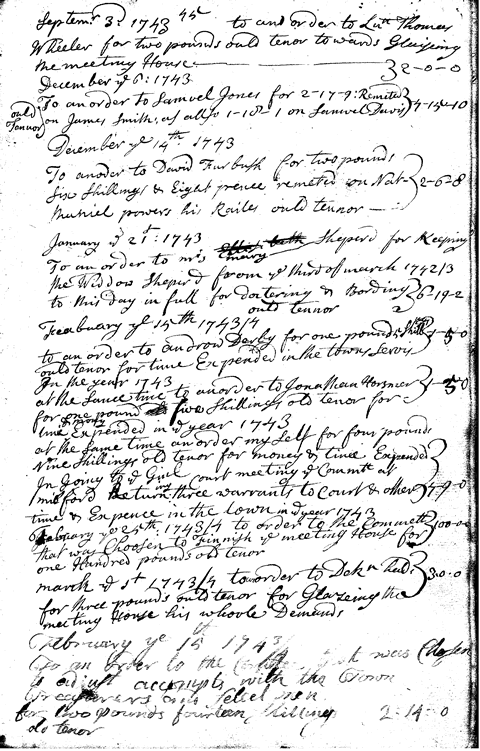 Septemr 3d 1743 to and order to Lutt Thomas
Wheeler for two pounds ould tenor towards Glaising
the meeting House 2-0-0
December ye 6: 1743
ould Tanour
To an order to Samuel Jones for 2-17-9: Remeted
on James Smith, as allso 1-18-1 on Samuel Davis 4-15-10
December ye 14th. 1743
To anoder to David Furbush for two pounds
Six Shillings & Eight pence remeted on Nat-
haniel powers his Raites ould tennor 2-6-8
January ye 21st: 1743
To an order to mrs mary Sheperd for Keeping
the Widdow Sheperd froom ye third of march 1742/3
to this day in full for doctering & Bording
ould tennor 6-19-2
Feabuary ye 15th 1743/4
to an order to androw Derby for one pound 5 Shill
ould tenor for time Expended in the towns Servis 1-5-0
In the year 1743
at the Same time to an order to Jonathan Hormer
for one pound five Shillings old tenor for
time Expended in ye year 1743
at the Same time an order my Self for four pounds
Nine Shillings old tenor for money & time Expended
In Going to ye Ginl court meeting ye Committ at
milford Return three warrants to Court & other 4-9-0
time & Expence in the town in ye year 1743
February ye 25th: 1743/4 to order to the Committ
that was Choosen to Finnish ye meeting House for
one Hundred pounds old tenor 100-0-0
march ye 1st 1743/4 to order to Dekn
for three pounds ould tenor for Glazeing the 3-0-0
meeting House his whoole Demands
February ye 15th 1743/
To an order to the was Chosen
to adjust accompts with the Town
Treasurers and Select men
for two pounds fourteen Shillings 2-14-0
old tenor